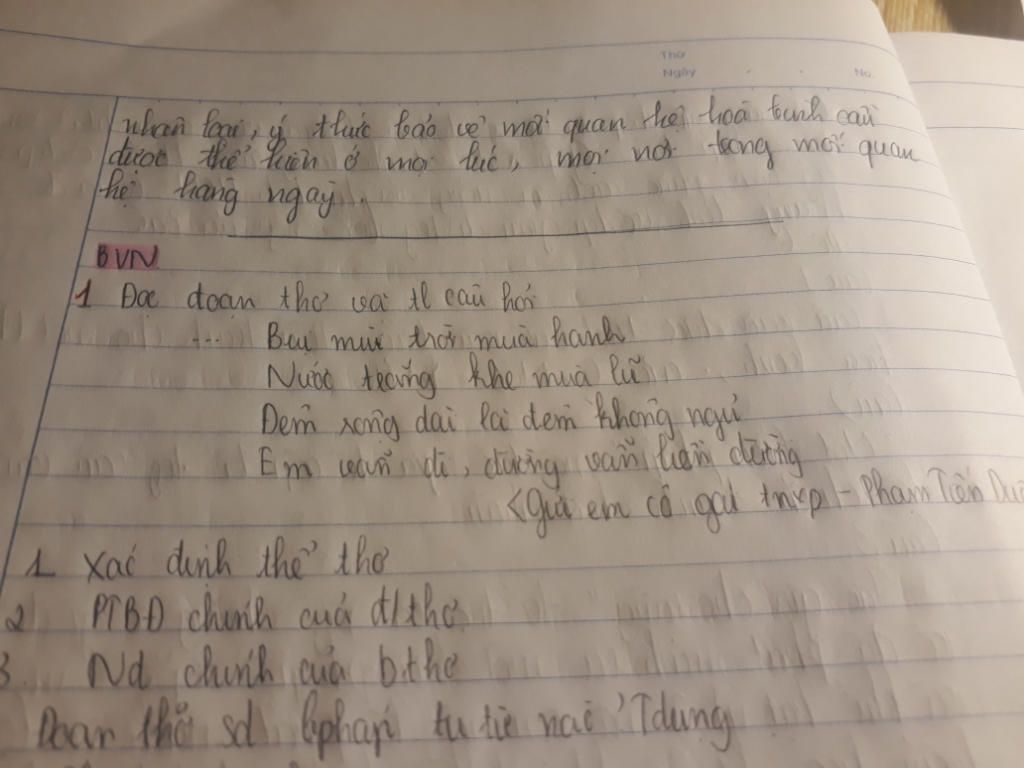 Thứ
Ngày No.
nhân loại, ý thức bảo vệ mối quan hệ hoà bình cần
được thể hiện ở mọi lúc, mọi nơi trong mối quan
hệ hàng ngày.
BVN
1 Đọc đoạn thơ và tl câu hỏi
... Bụi mùi trời mùa hanh
Nước trắng khe mùa lũ
Đêm rộng dài là đêm không ngủ
Em vẫn đi, đường vẫn liền đường
<Gửi em cô gái tnxp - Phạm Tiến Duậ
1 Xác định thể thơ
2 PTBĐ chính của đ/thơ
3. Nd chính của b.thơ
Đoạn thơ sd bphap tu từ nào? Tdung